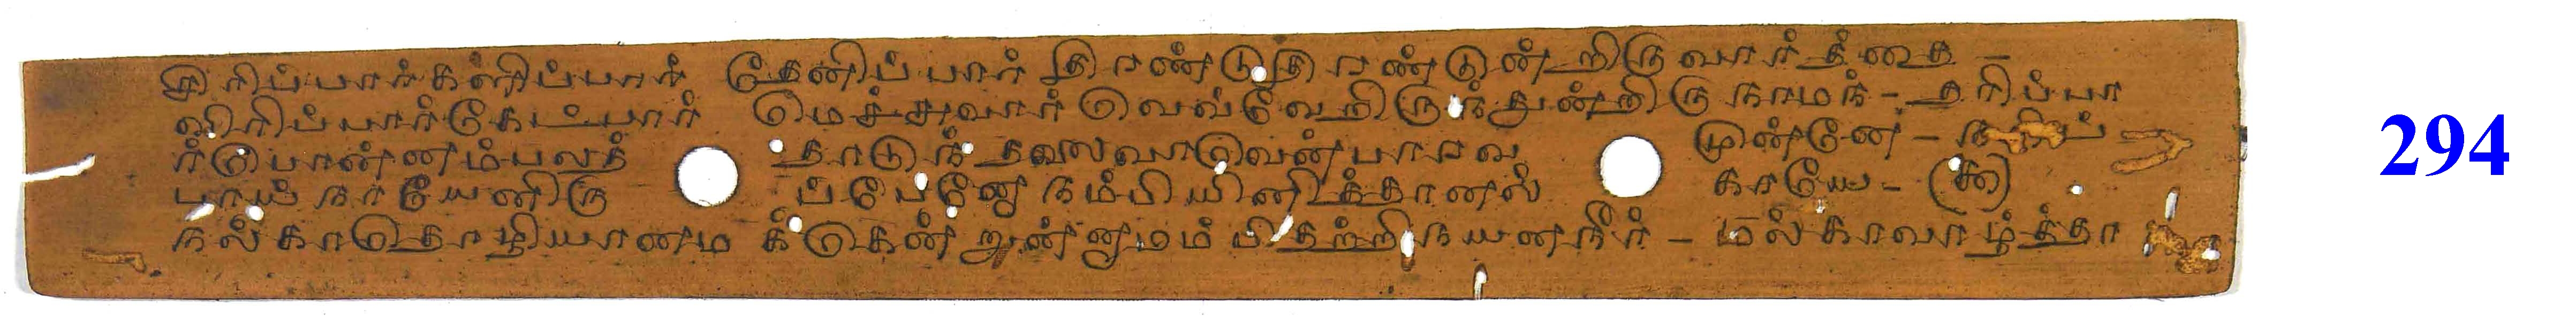 சிரிப்பார்களிப்பார் தேனிப்பார் திரண்டுதிரண்டுன்றிருவார்த்தை -
விரிப்பார்கேட்பார் மெச்சுவார் வெவ்வேறிருந்துன்றிருநாமந் - தரிப்பா
ர்பொன்னம்பலத் தாடுந் தலைவாவென்பாரவ முன்னே - நரிப்
பாய் நாயேனிரு ப்பேனோ நம்பியினித்தானல் காயே - (௯)
நல்காதொழியானம க்கென்றுன்னாமம் பிதற்றி நயனநீர் - மல்காவாழ்த்தா
294